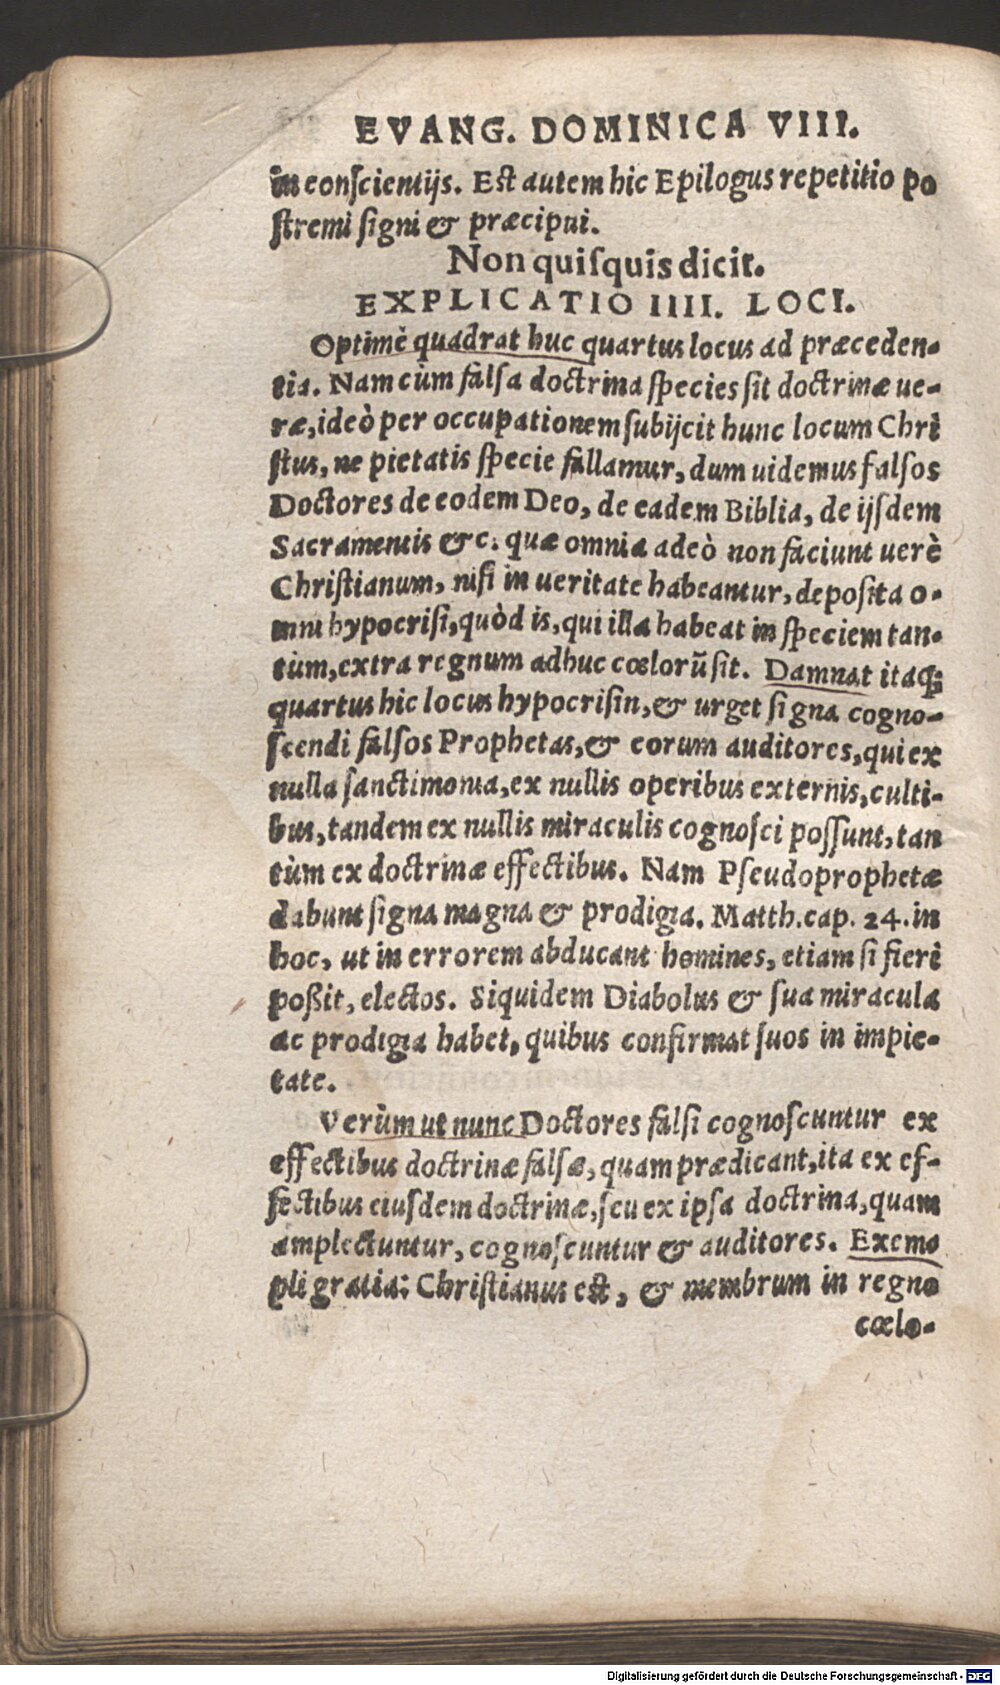 EVANG. DOMINICA VIII.
in conſcientijs. Est autem hic Epilogus repetitio po
ſtremi ſigni & præcipui.
Non quiſquis dicit.
EXPLICATIO IIII. LOCI.
Optimè quadrat huc quartus locus ad præceden-
tia. Nam cùm falſa doctrina ſpecies ſit doctrinæ ue-
ræ, ideò per occupationem ſubijcit hunc locum Chri
ſtus, ne pietatis ſpecie fallamur, dum uidemus falſos
Doctores de eodem Deo, de eadem Biblia, de ijſdem
Sacramentis &c. quæ omnia adeò non faciunt uerè
Chriſtianum, niſi in ueritate habeantur, depoſita o-
mni hypocriſi, quòd is, qui illa habeat in ſpeciem tan-
tùm, extra regnum adhuc cœlorũ ſit. Damnat itaq;
quartus hic locus hypocriſin, & urget ſigna cogno-
ſcendi falſos Prophetas, & eorum auditores, qui ex
nulla ſanctimonia, ex nullis operibus externis, culti-
bus, tandem ex nullis miraculis cognoſci poſſunt, tan
tùm ex doctrinæ effectibus. Nam Pſeudoprophetæ
dabunt ſigna magna & prodigia. Matth. cap. 24. in
hoc, ut in errorem abducant homines, etiam ſi fieri
poßit, electos. Siquidem Diabolus & ſua miracula
ac prodigia habet, quibus confirmat ſuos in impie-
tate.
Verùm ut nunc Doctores falſi cognoſcuntur ex
effectibus doctrinæ falſæ, quam prædicant, ita ex ef-
fectibus eiuſdem doctrinæ, ſeu ex ipſa doctrina, quam
amplectuntur, cognoſcuntur & auditores. Exem-
pli gratia: Chriſtianus est, & membrum in regno
cœlo-
Digitalisierung gefördert durch die Deutsche Forschungsgemeinschaft - DFG